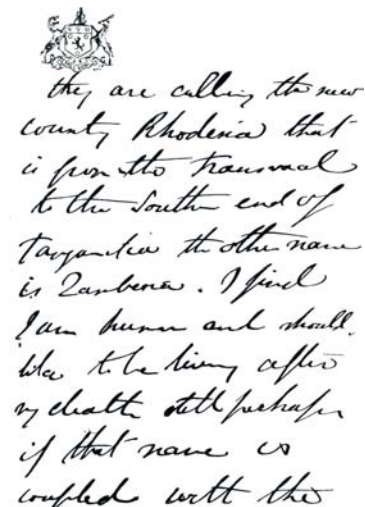 they are calling the new
county Rhodesia that
is from the Transvaal
to the Southern end of
Tanganika the other name
is Zambesia. I find
I am human and should
like to be living after
my death still perhaps
if that name is
coupled with the